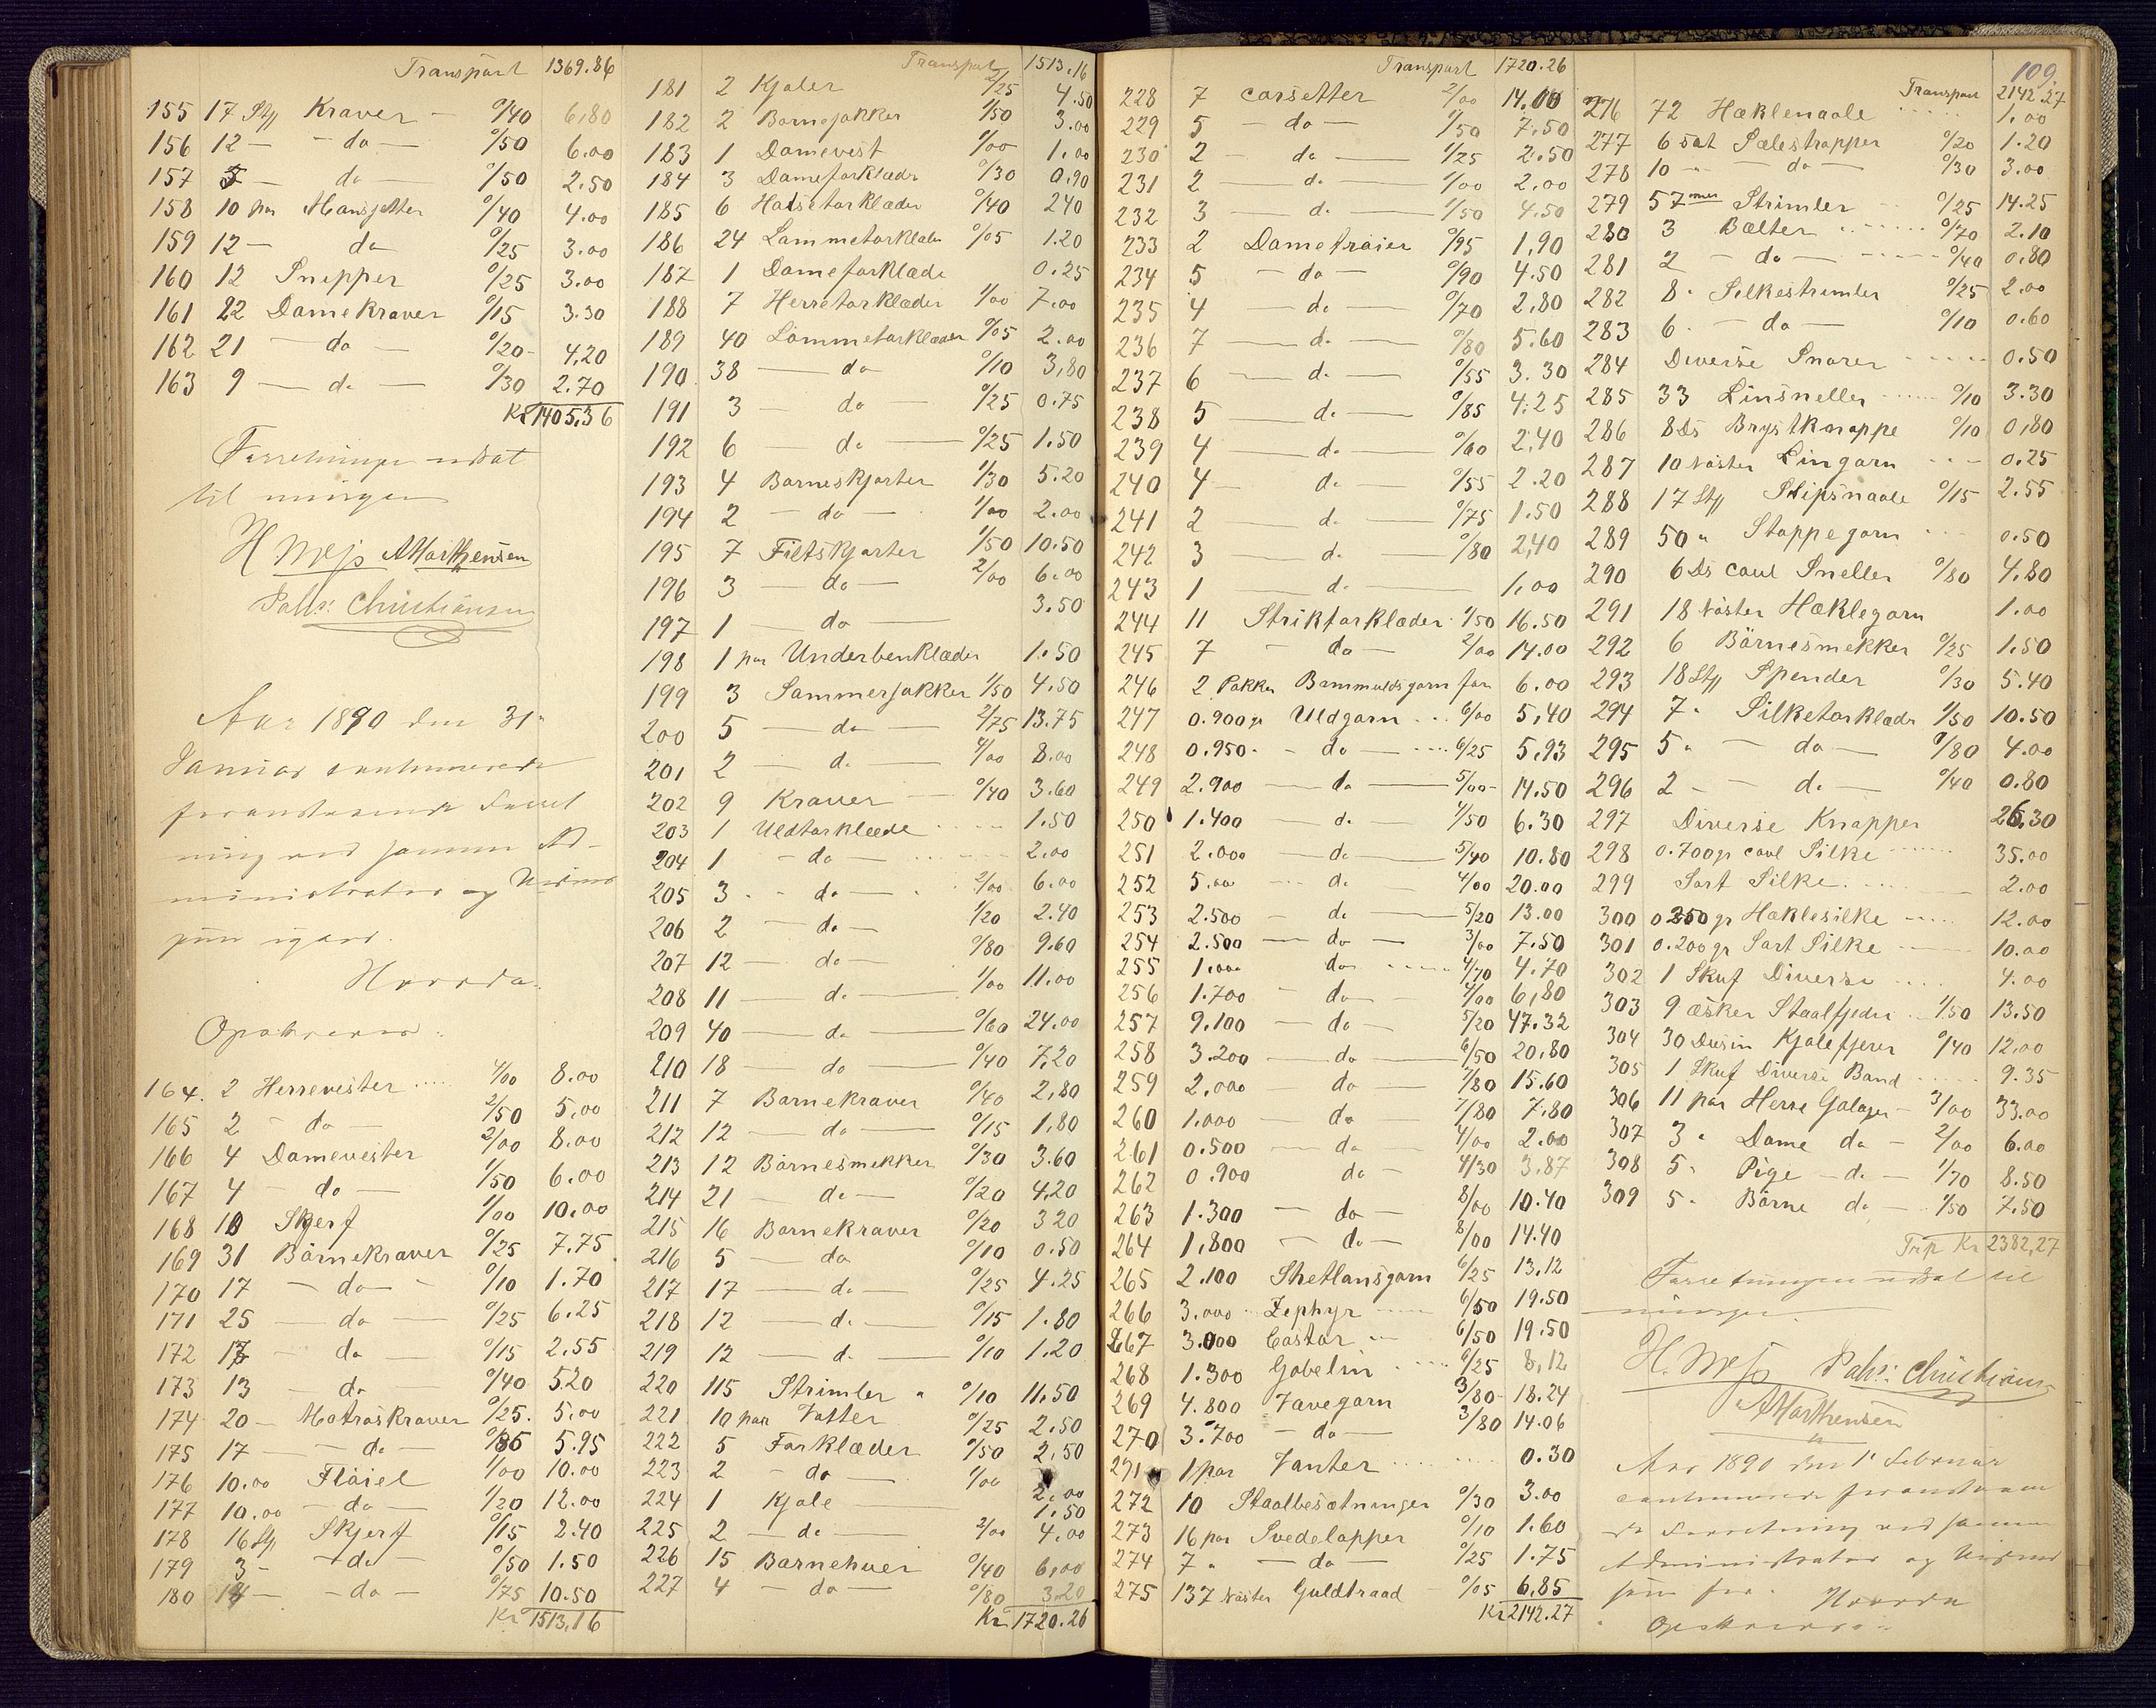 Transport 1369.86
155 17 Stk Kraver - 0/40 6,80
156 12 — - do — 0/50 6.00
157 5 — do — 0/50 2.50
158 10 par Mansjetter 0/40 4.00
159 12 — do 0/25 3.00
160 12 Snipper 0/25 3.00
161 22 Damekraver 0/15 3.30
162 21 — do — 0/20 - 4,20
163 9 — do — 0/30 2.70
Kr 1405,36
Forretningen udsat
til
H Mejs AMarthensen
Christiansen
Aar 1890 den 31
Januar
ministrator og
igaar.
Hvorda
164. 2 Herrevester .... 4/00 8.00
165 2 - do — 2/50 5,00
166 4 Damevester 2/00 8.00
167 4 — do — 1/50 6.00
168 10 Skjerf 1/00 10.00
169 31 Börnekraver 0/25 7.75
170 17 — do — 0/10 1.70
171 25 — do — 0/25 6.25
172 17 — do — 0/15 2.55
173 13 — do 0/40 5.20
174 20 — Matroskraver 0/25. 5.00
175 17 — - do — 0/35 5.95
176 10.00 Flöiel 1/00 10.00
177 10.00 — do — 1/20 12.00
178 16 Stk Skjerf 0/15 2.40
179 3 - - do — 0/50 1.50
180 14 — - do — 0/75 10.50
Kr 1513,16
Transport 1513.16
181 2 Kjoler 2/25 4.50
182 2 Barnejakker 1/50 3.00
183 1 Damevest 1/00 1.00
184 3 Dameforklæde 0/30 0,90
185 6 Halstorklæder 0/40 240
186 24 Lommetorklæder 0/05 1.20
187 1 Dameforklæde 0.25
188 7 Herretorklæder 1/00 7.00
189 40 Lommetorklæder 0/05 2.00
190 38 — do 0/10 3,80
191 3 — do — 0/25 0.75
192 6 — do — 0/25 1.50
193 4 Barneskjorter 1/30 5.20
194 2 — do — 1/00 2.00
195 7 Filtskjorter 1/50 10.50
196 3 — do — 2/00 6.00
197 1 — do — 3.50
198 1 par Underbenklæder 1.50
199 3 Sommerjakker 1/50 4.50
200 5 — do — 2/75 13.75
201 2 — do — 4/00 8.00
202 9 Kraver — 0/40 3.60
203 1 Uldtorklæde .... 1.50
204 1 - do — .... 2.00
205 3 - - do — 2/00 6.00
206 2 — do — 1/20 2.40
207 12 — do — 0/80 9.60
208 11 — do — 1/00 11.00
209 40 — do — 0/60 24.00
210 18 — do — 0/40 7,20
211 7 Barnekraver 0/40 2,80
212 12 — do — 0/15 1,80
213 12 Börnesmekker 0/30 3.60
214 21 — do — 0/20 4,20
215 16 Barnekraver 0/20 320
216 5 — do 0/10 0.50
217 17 — do — 0/25 4.25
218 12 — do — 0/15 1.80
219 12 — do — 0/10 1.20
220 115 Strimler " 0/10 11,50
221 10 par Votter 0/25 2.50
222 5 Forklæder 0/50 2,50
223 2 - do — 1/00 2.00
224 1 Kjole — 1.50
225 2 — do — 2/00 4.00
226 15 Barnehuer 0/40 6,00
227 4 — do — 0/80 3.20
Kr 1720.26
Transport 1720.26
228 7 Corsetter 2/00 14,00
229 5 - do — 1/50 7.50
230 2 - do — 1/25 2.50
231 2 — do — 1/00 2.00
232 3 — do — 1/50 4.50
233 2 Dametröier 0/95 1,90
234 5 — do — 0/90 4.50
235 4 — do — 0/70 2,80
236 7 — do — 0/80 5.60
237 6 — do — 0/55 3.30
238 5 — do — 0/85 4.25
239 4 — do — 0/60 2,40
240 4 — do — 0/55 2.20
241 2 — do — 0/75 1.50
242 3 — do — 0/80 2,40
243 1 — do — 1,00
244 11 Striktorklæder 1/50 16.50
245 7 - do — 2/00 14.00
246 2 Pakker Bommuldsgarn for 6.00
247 0.900 gr Uldgarn ... 6/00 5,40
248 0.950 - - do — ... 6/25 5,93
249 2.900 — do — 5/00 - 14.50
250 1.400 — do — 4/50 6.30
251 2.000 — do — 5/40 10.80
252 5.00 — do — 4/00 20.00
253 2.500 — do — 5/20 13.00
254 2.500 — do — 3/00 7.50
255 1.000 do .... 4/70 4.70
256 1.700 — do — 4/00 6,80
257 9.100 — do — 5/20 47.32
258 3.200 — do — 6/50 20,80
259 2.000 do — 7/80 15.60
260 1.000 — do — 7/80 7.80
261 0.500 — do — 4/00 2.00
262 0.900 do — 4/30 3.87
263 1.300 — do — 8/00 10.40
264 1,800 — do — 8/00 14.40
265 2.100 Shetlansgarn 6/25 13,12
266 3.000 Zephyr — 6/50 19.50
267 3.000 Castor — 6/50 19.50
268 1.300 Gobelin .... 6/25 8,12
269 4.800 Vavegarn 3/80 - 18.24
270 3.700 — do — 3/80 14.06
271 1 par Vanter .... 0.30
272 10 Staalbesætninger 0/30 3.00
273 16 par Svedelapper 0/10 1.60
274 7 " — do — 0/25 1.75
275 137 Nöster Guldtraad 0/05 6,85
Kr 2142.27
109.
Transport 2142.27
276 72 Hæklenaale .... 1.00
277 6 sat Sælestropper 0/20 1.20
278 10 - - do — 0/30 3.00
279 57 Strimler 0/25 14.25
280 3 Bælter .... 0/70 2.10
281 2 — do — 0/40 0.80
282 8 " Silkestrimler 0/25 2.00
283 6. — do — 0/10 0.60
284 Diverse Snorer .... 0.50
285 33 Linsneller .... 0/10 3.30
286 8 Ds Brystknappe 0/10 0,80
287 10 Nöster Lingarn — 0.25
288 17 Stk Slipsnaale 0/15 2.55
289 50 " Stoppegarn ... 0.50
290 6 Ds coul Sneller 0/80 4.80
291 18 Nöster Hæklegarn 1.00
292 6 Börnesmekker 0/25 1.50
293 18 Stk Spender 0/30 5.40
294 7 " Silketorklæde 1/50 10.50
295 5 " — do — 0/80 4.00
296 2 - — do — 0/40 0.80
297 Diverse Knapper 26.30
298 0.700 gr coul Silke .... 35.00
299 Sort Silke .... 2.00
300 0.250 gr Hæklesilke .... 12.00
301 0.200 gr Sort Silke — 10.00
302 1 Skuf Diverse .... 4.00
303 9 æsker Staalfjedre .. 1/50 13.50
304 30 Dusin Kjolefjerer 0/40 12,00
305 1 Skuf Diverse Band .... 9.35
306 11 par Herre Galoger - 3/00 33.00
307 3 " Dame do - 2/00 6.00
308 5 " Pige — do — 1/70 8.50
309 5 " Börne do — 1/50 7.50
Trp Kr 2382,27
Forretningen udsat til
H. Mejs Christians
AMarthensen
Aar 1890 den 1 Februar
Forretning ved samme
Administrator og
Hvorda